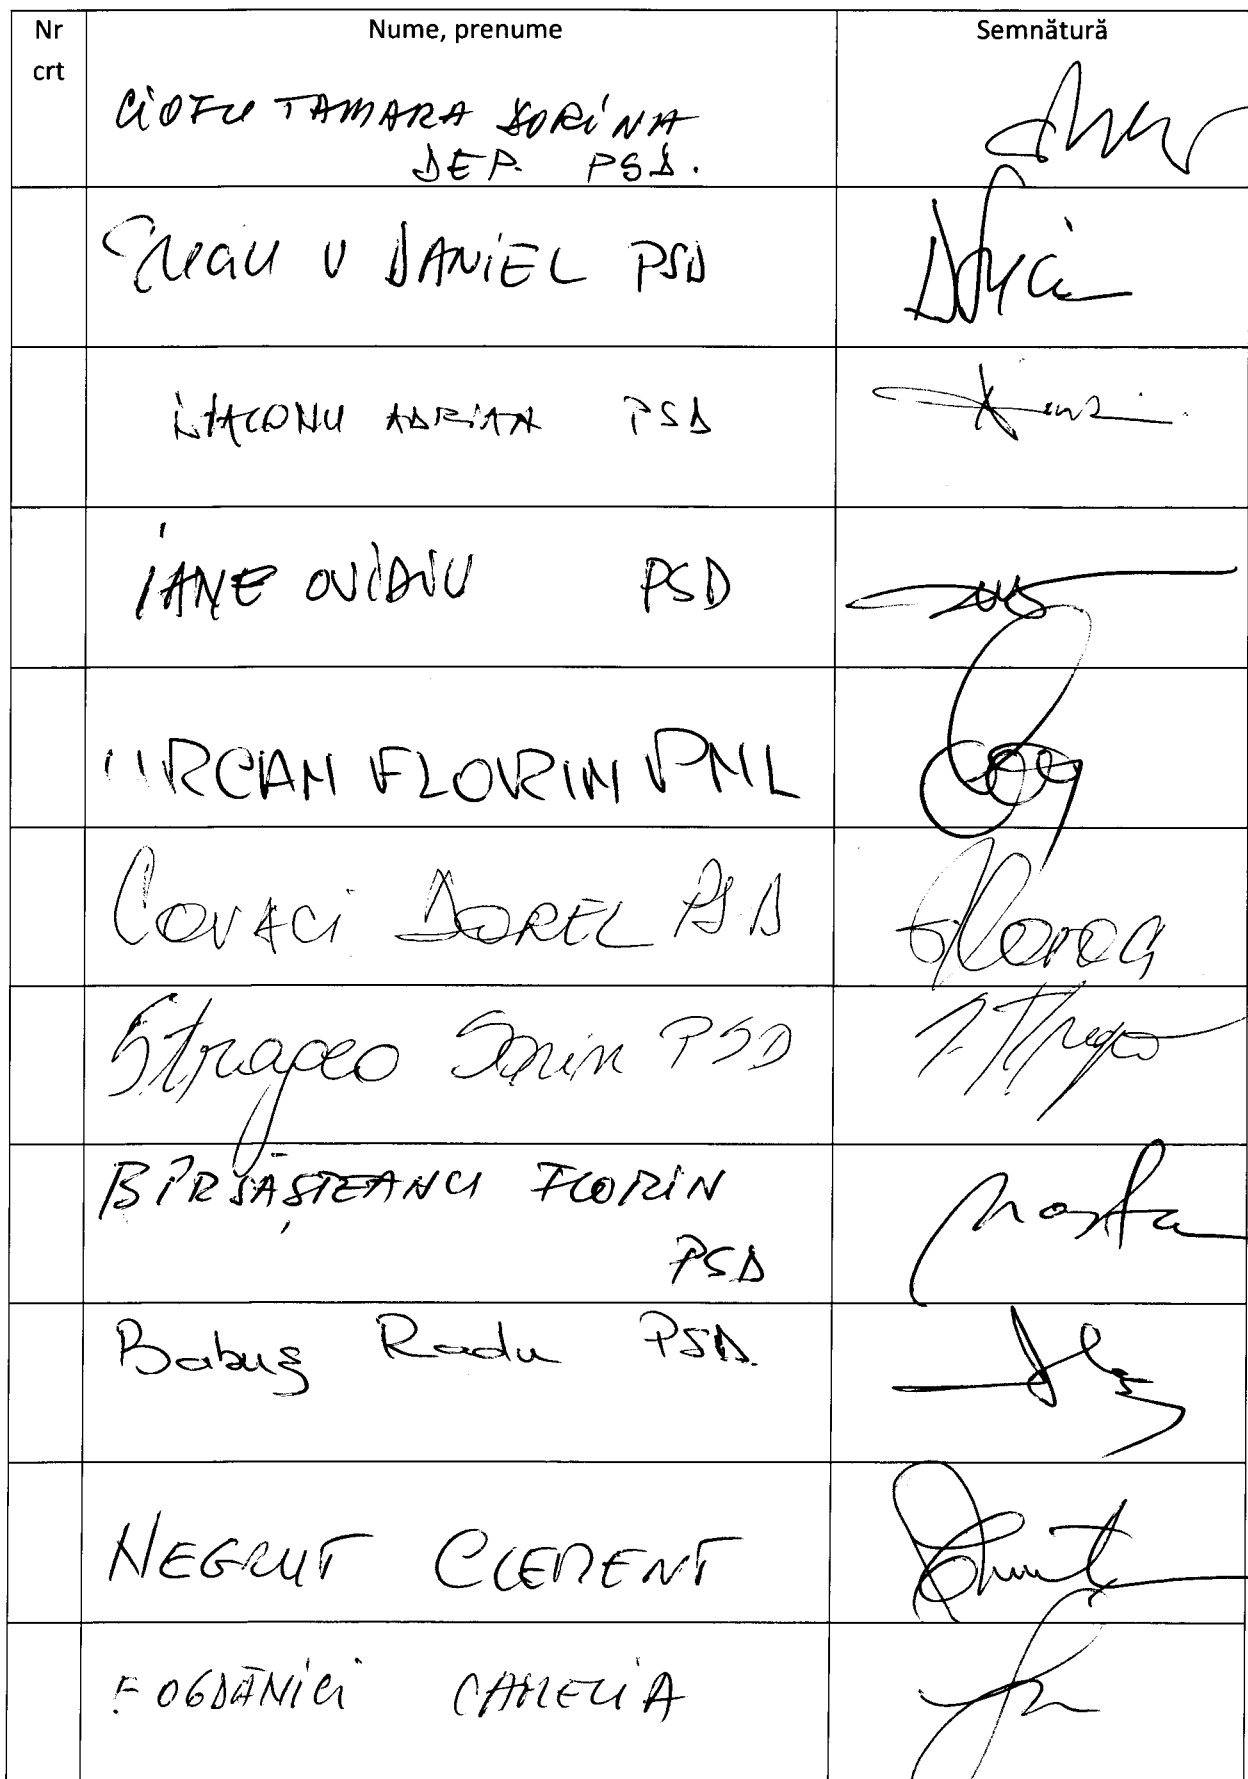 Nr crt Nume, prenume Semnătură
CIOFU TAMARA DORINA
DEP. PSD.
V DANIEL PSD
DIACONU ADRIAN PSD
IANE OVIDIU PSD
URCAN FLORIN PNL
COVACI DOREL PSD
Stragea Sorin PSD
BÎRSĂȘTEANU FLORIN
PSD
Babuș Radu PSD.
NEGRUT CLEMENT
BOGDĂNICI CAMELIA